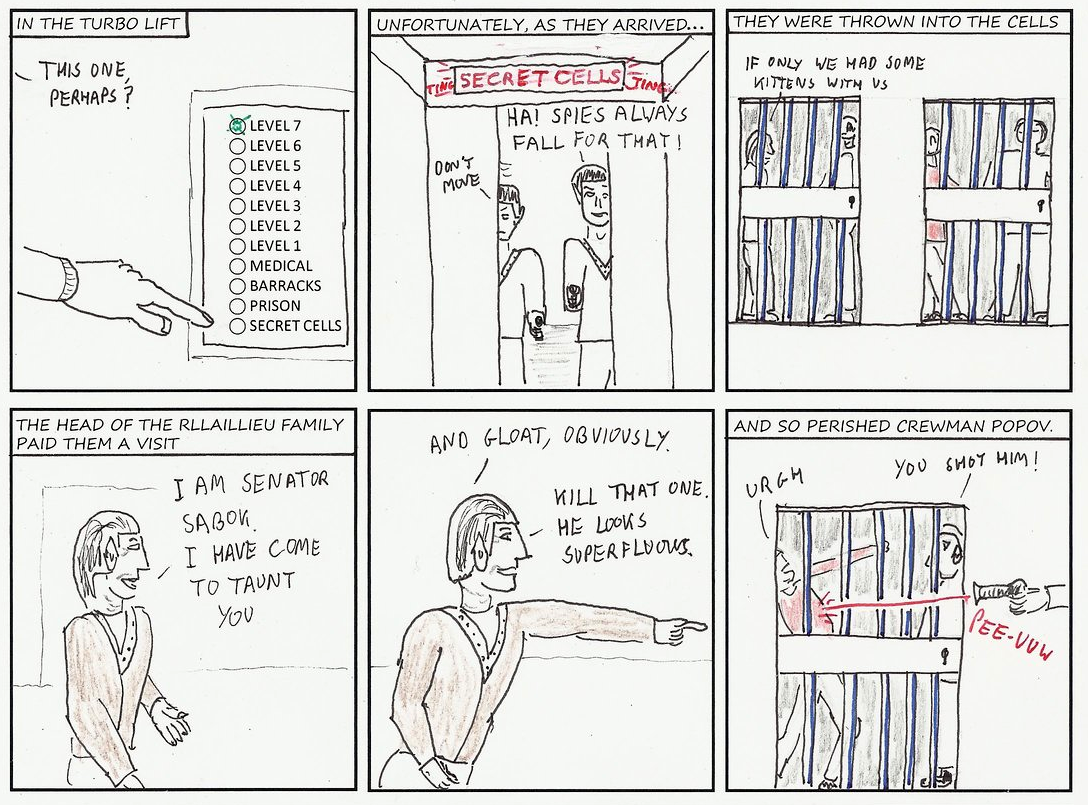 IN THE TURBO LIFT
THIS ONE,
PERHAPS?
LEVEL 7
LEVEL 6
LEVEL 5
LEVEL 4
LEVEL 3
LEVEL 2
LEVEL 1
MEDICAL
BARRACKS
PRISON
SECRET CELLS
UNFORTUNATELY, AS THEY ARRIVED...
TING
SECRET CELLS
TING
HA! SPIES ALWAYS
FALL FOR THAT!
DON'T
MOVE
THEY WERE THROWN INTO THE CELLS
IF ONLY WE HAD SOME
KITTENS WITH US
THE HEAD OF THE RLLAILLIEU FAMILY
PAID THEM A VISIT
I AM SENATOR
SABOK.
I HAVE COME
TO TAUNT
YOU
AND GLOAT, OBVIOUSLY.
KILL THAT ONE.
HE LOOKS
SUPERFLUOUS.
AND SO PERISHED CREWMAN POPOV.
URGH
YOU SHOT HIM!
PEE-VUW